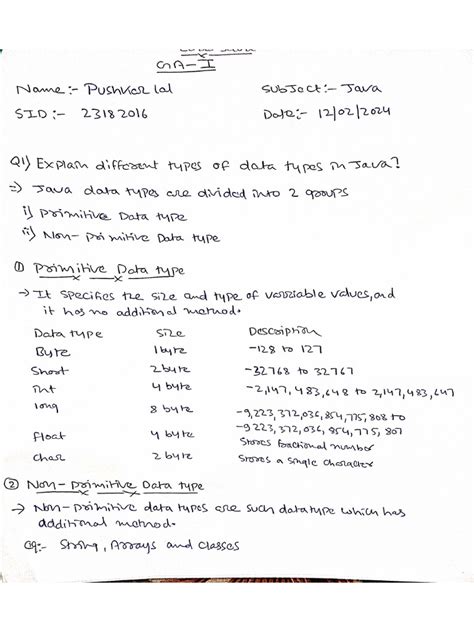 GA-I
Name:- Pushkar lal Subject:- Java
SID:- 23182016 Date:- 12/02/2024
Q1) Explain different types of data types in Java?
=) Java data types are divided into 2 groups
i) Primitive Data type
ii) Non-primitive Data type
① Primitive Data type
→ It specifies the size and type of variable values, and
it has no additional method.
Data type Size Description
Byte 1 byte -128 to 127
Short 2 byte -32768 to 32767
int 4 byte -2,147,483,648 to 2,147,483,647
long 8 byte -9,223,372,036,854,775,808 to
-9223,372,036,854,775,807
float 4 byte Stores fractional number
char 2 byte Stores a single character
② Non-primitive Data type
→ Non-primitive data types are such datatype which has
additional method.
Eg:- String, Arrays and classes